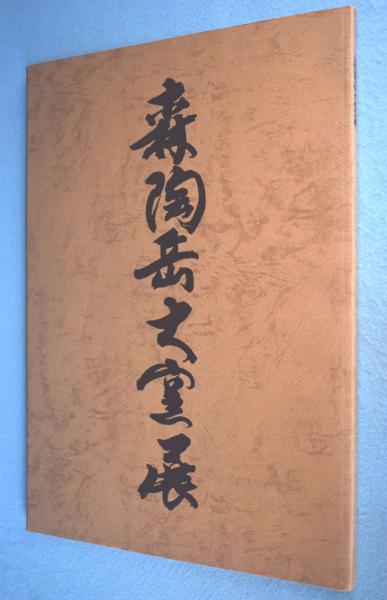 森陶岳大窯展